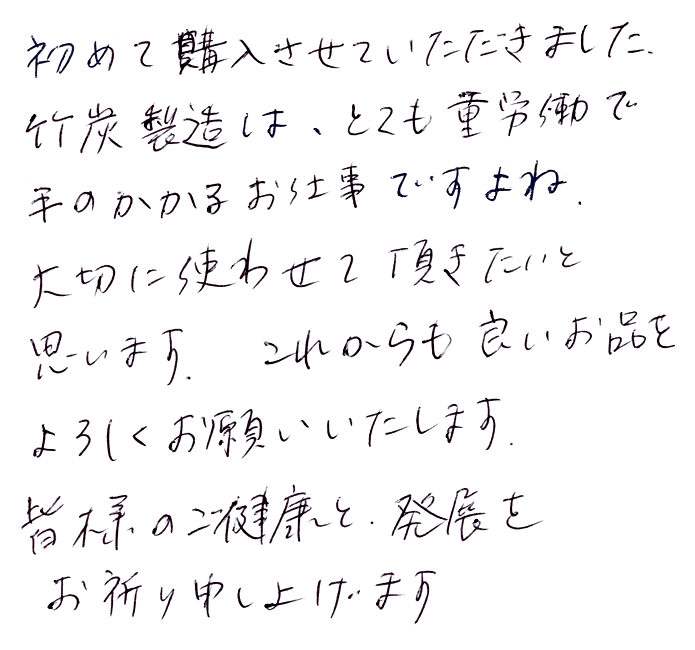 初めて購入させていただきました.
竹炭製造は、とても重労働で
手のかかるお仕事ですよね.
大切に使わせて頂きたいと
思います. これからも良いお品を
よろしくお願いいたします.
皆様のご健康と、発展を
お祈り申し上げます